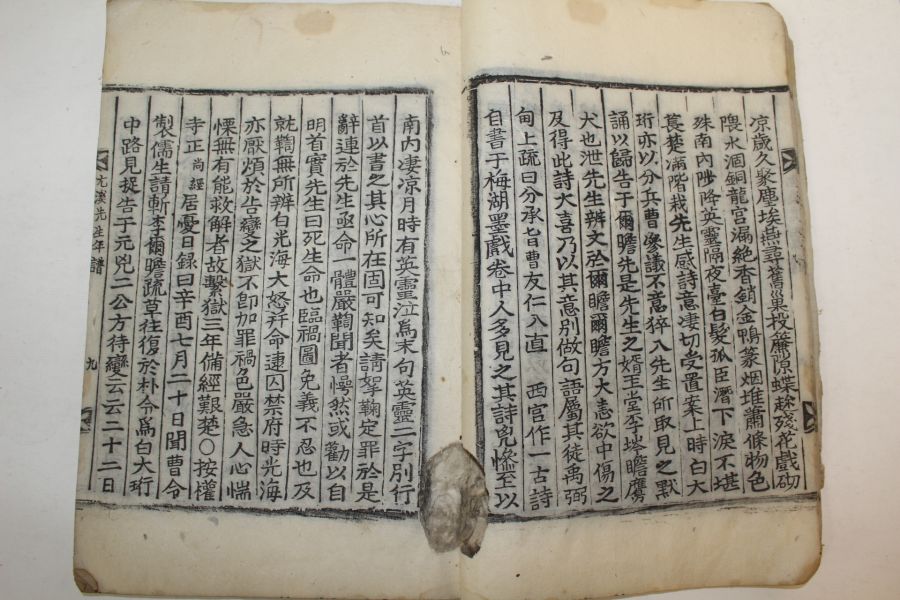 凉歲久聚塵埃燕尋舊巢投廢
蝶趂殘花戲砌
隈水涸銅龍宮漏絶香銷金鴨篆烟堆蕭條物色
殊南內陟降英靈隔夜臺白髮孤臣潛下淚不堪
萋楚滿階栽先生感詩意凄切受置案上時白大
珩亦以分兵曹叅議不意猝入先生所取見之默
誦以歸告于爾瞻先是先生之婿王堂李
瞻鷹
犬也泄先生辨文於爾瞻爾瞻方大恚欲中傷之
及得此詩大喜乃以其意別做句語屬其徒禹弼
甸上疏曰分承旨曹友仁入直 西宮作一古詩
自書于梅湖墨戲卷中人多見之其詩皃慘至以
南內凄凉月時有英靈泣爲末句英靈二字別行
首以書之其心所在固可知矣請拏鞠定罪於是
辭連於先生亟命一體嚴鞫聞者悚然或勸以自
明首實先生曰死生命也臨禍圖免義不忍也及
就鞫無所辨白光海大怒并命逮囚禁府時光海
亦厭煩於告變之獄不卽加罪禍色嚴急人心惴
慄無有能救解者故繫獄三年備經艱楚○按權
寺正尚經居憂日錄曰辛酉七月二十日聞曹令
製儒生請斬李爾瞻疏草往復於朴令爲白大珩
中路見捉告于元兇二公方待變云云二十二日
先生年譜
九